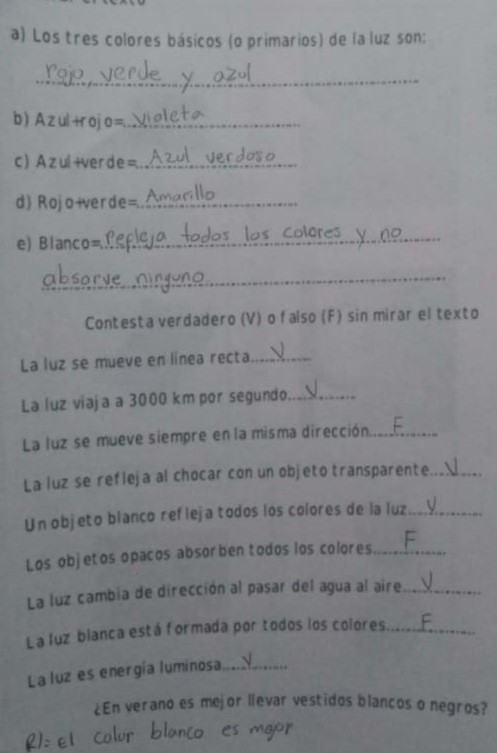 a) Los tres colores básicos (o primarios) de la luz son:
rojo, verde y azul
b) Azul+rojo= violeta
c) Azul+verde= Azul verdoso
d) Rojo+verde= Amarillo
e) Blanco= Refleja todos los colores y no
absorve ninguno
Contesta verdadero (V) o falso (F) sin mirar el texto
La luz se mueve en línea recta....V......
La luz viaja a 3000 km por segundo....V......
La luz se mueve siempre en la misma dirección....F......
La luz se refleja al chocar con un objeto transparente...V....
Un objeto blanco refleja todos los colores de la luz....V......
Los objetos opacos absorben todos los colores....F......
La luz cambia de dirección al pasar del agua al aire....V......
La luz blanca está formada por todos los colores....F......
La luz es energía luminosa....V......
¿En verano es mejor llevar vestidos blancos o negros?
R/= el color blanco es mejor